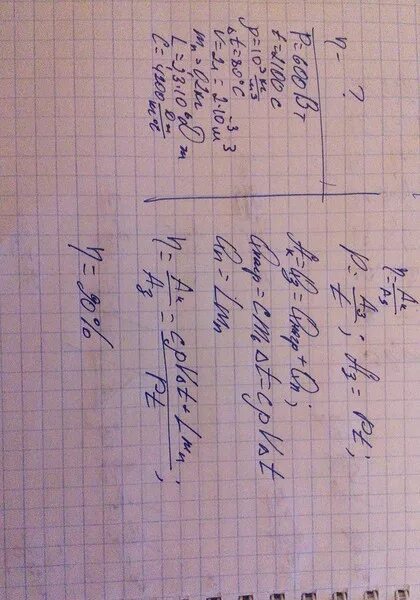 P=600 Вт
t=2100 c
ρ=10³ кг/м³
Δt=80°C
V=2л=2·10⁻³ м³
mп=0,2кг
L=2,3·10⁶ Дж
C=4200 Дж/кг°C
η - ?
η=Aп/Aз
P=Aз/t; Aз=Pt;
Aп=Qз=Qнагр+Qп;
Qнагр=cmΔt=cρVΔt
Qп=Lmп
η=Aп/Aз=cρVΔt+Lmп/Pt;
η=90%